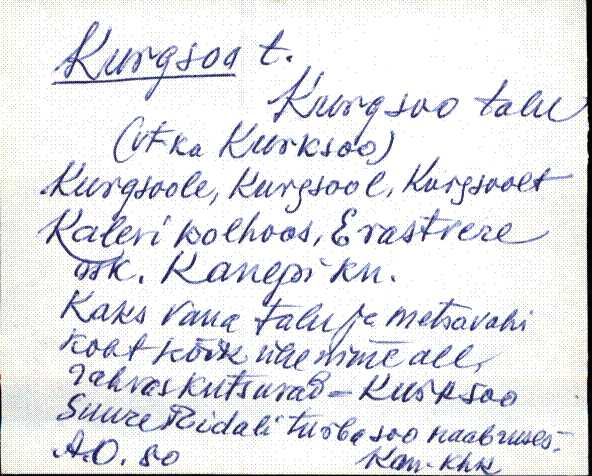 Kurgsoo t.
Kurgsoo talu
(vt ka Kurksoo)
Kurgsoole, Kurgsool, Kurgsoolt
Kalevi kolhoos, Erastvere
nk. Kanepi kn.
Kaks vana talu ja metsavahi
koht kõik ühe nime all,
rahvas kutsuvad - Kurksoo
Suure Pidali turbasoo naabruses.
A.O. 80 Kan. Khk